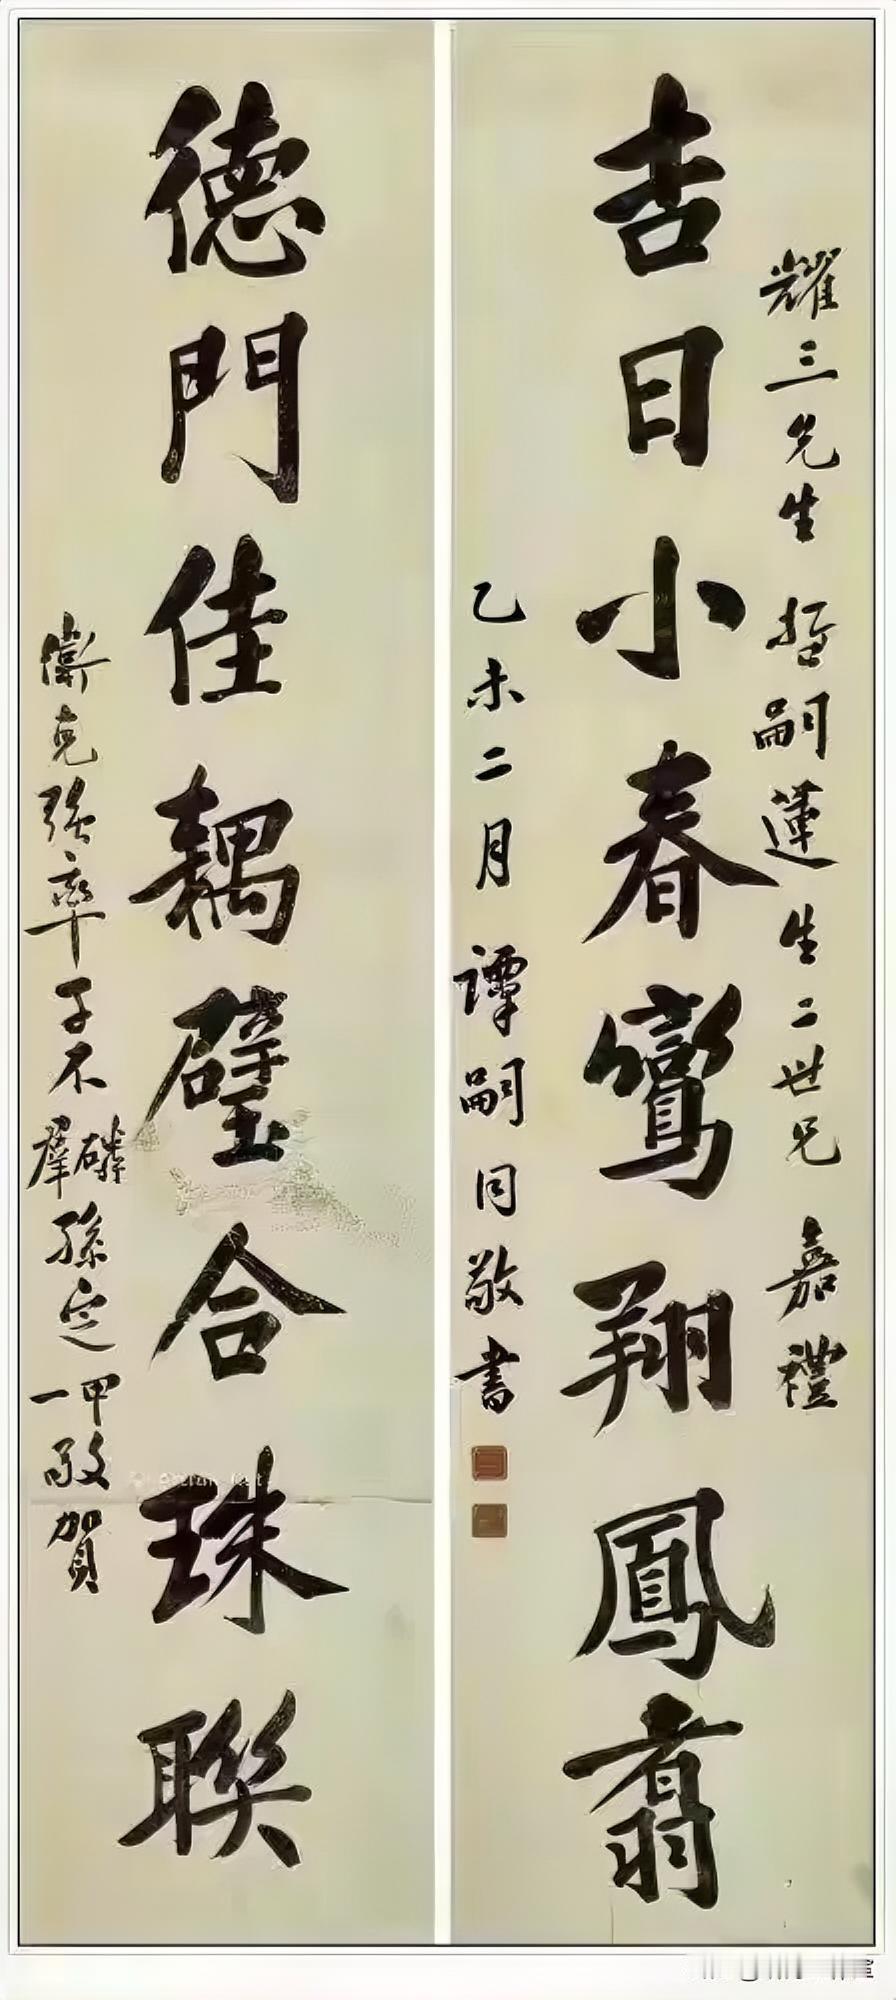 耀三先生 哲嗣蓮生二世兄 嘉禮
吉日小春鸞翔鳳翥
乙未二月 譚嗣同敬書
德門佳耦璧合珠聯
衛克強率子不磷羣孫定一甲敬賀